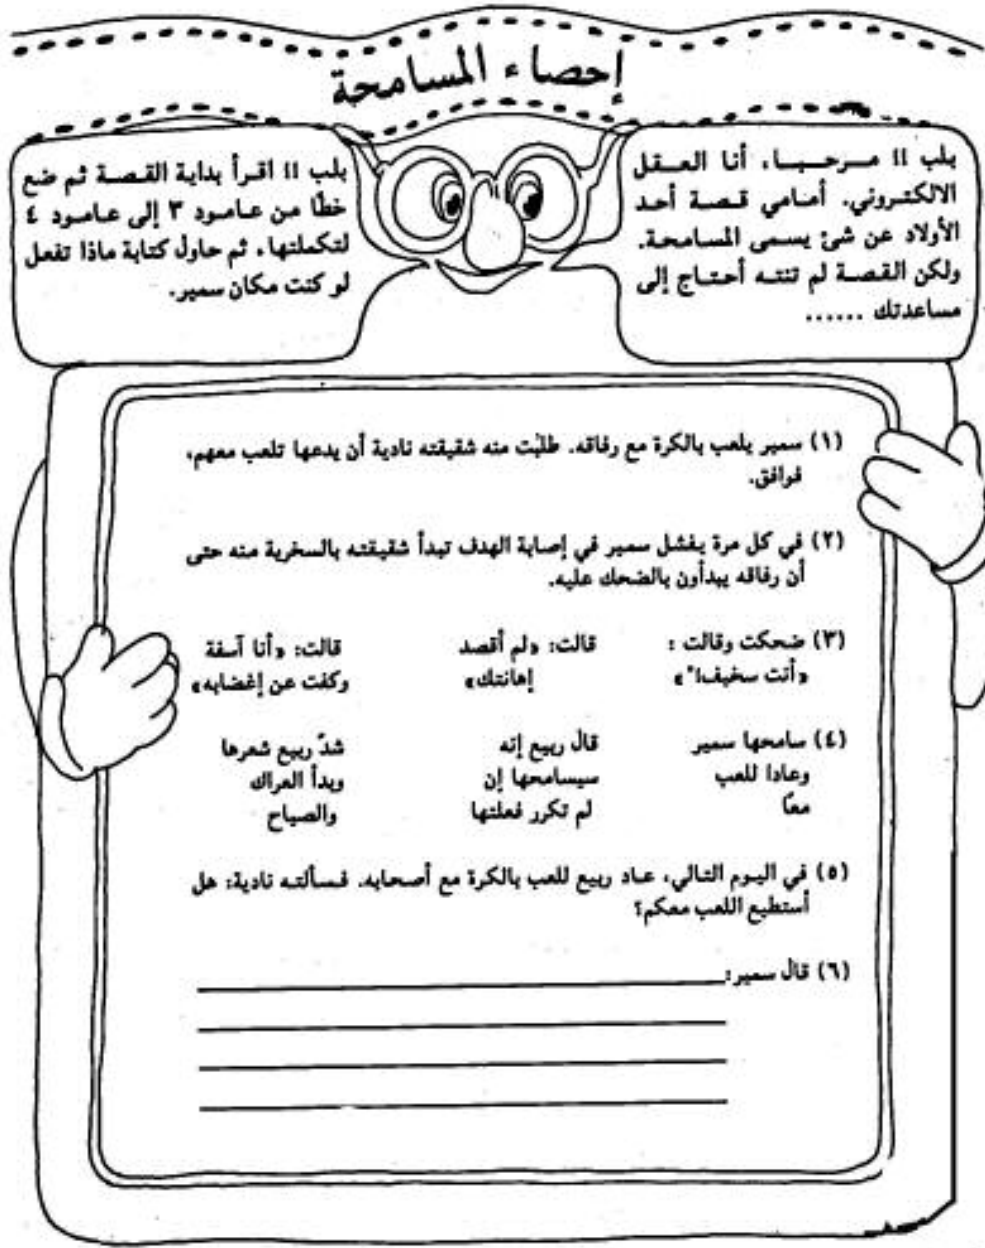 إحصاء المسامحة
بلب !! مـرحـبـا، أنا العـقل
الالكتـروني. أمـامي قـصـة أحـد
الأولاد عن شئ يسمى المسامحـة.
ولكن القصـة لم تنتـه أحتـاج إلى
مساعدتك ......
بلب !! اقـرأ بداية القـصـة ثم ضع
خطًا من عـامـود ٣ إلى عـامـود ٤
لتكملتها، ثم حاول كتابة ماذا تفعل
لو كنت مكان سمير.
(١) سمير يلعب بالكرة مع رفاقه. طلبت منه شقيقته نادية أن يدعها تلعب معهم،
فوافق.
(٢) في كل مرة يفشل سمير في إصابة الهدف تبدأ شقيقته بالسخرية منه حتى
أن رفاقه يبدأون بالضحك عليه.
(٣) ضحكت وقالت : قالت: «لم أقصد قالت: «أنا آسفة
«أنت سخيف!» إهانتك» وكفت عن إغضابه»
(٤) سامحها سمير قال ربيع إنه شدّ ربيع شعرها
وعادا للعب سيسامحها إن وبدأ العراك
معًا لم تكرر فعلتها والصياح
(٥) في اليوم التالي، عـاد ربيع للعب بالكرة مع أصـحابه. فـسألتـه نادية: هل
أستطيع اللعب معكم؟
(٦) قال سمير: